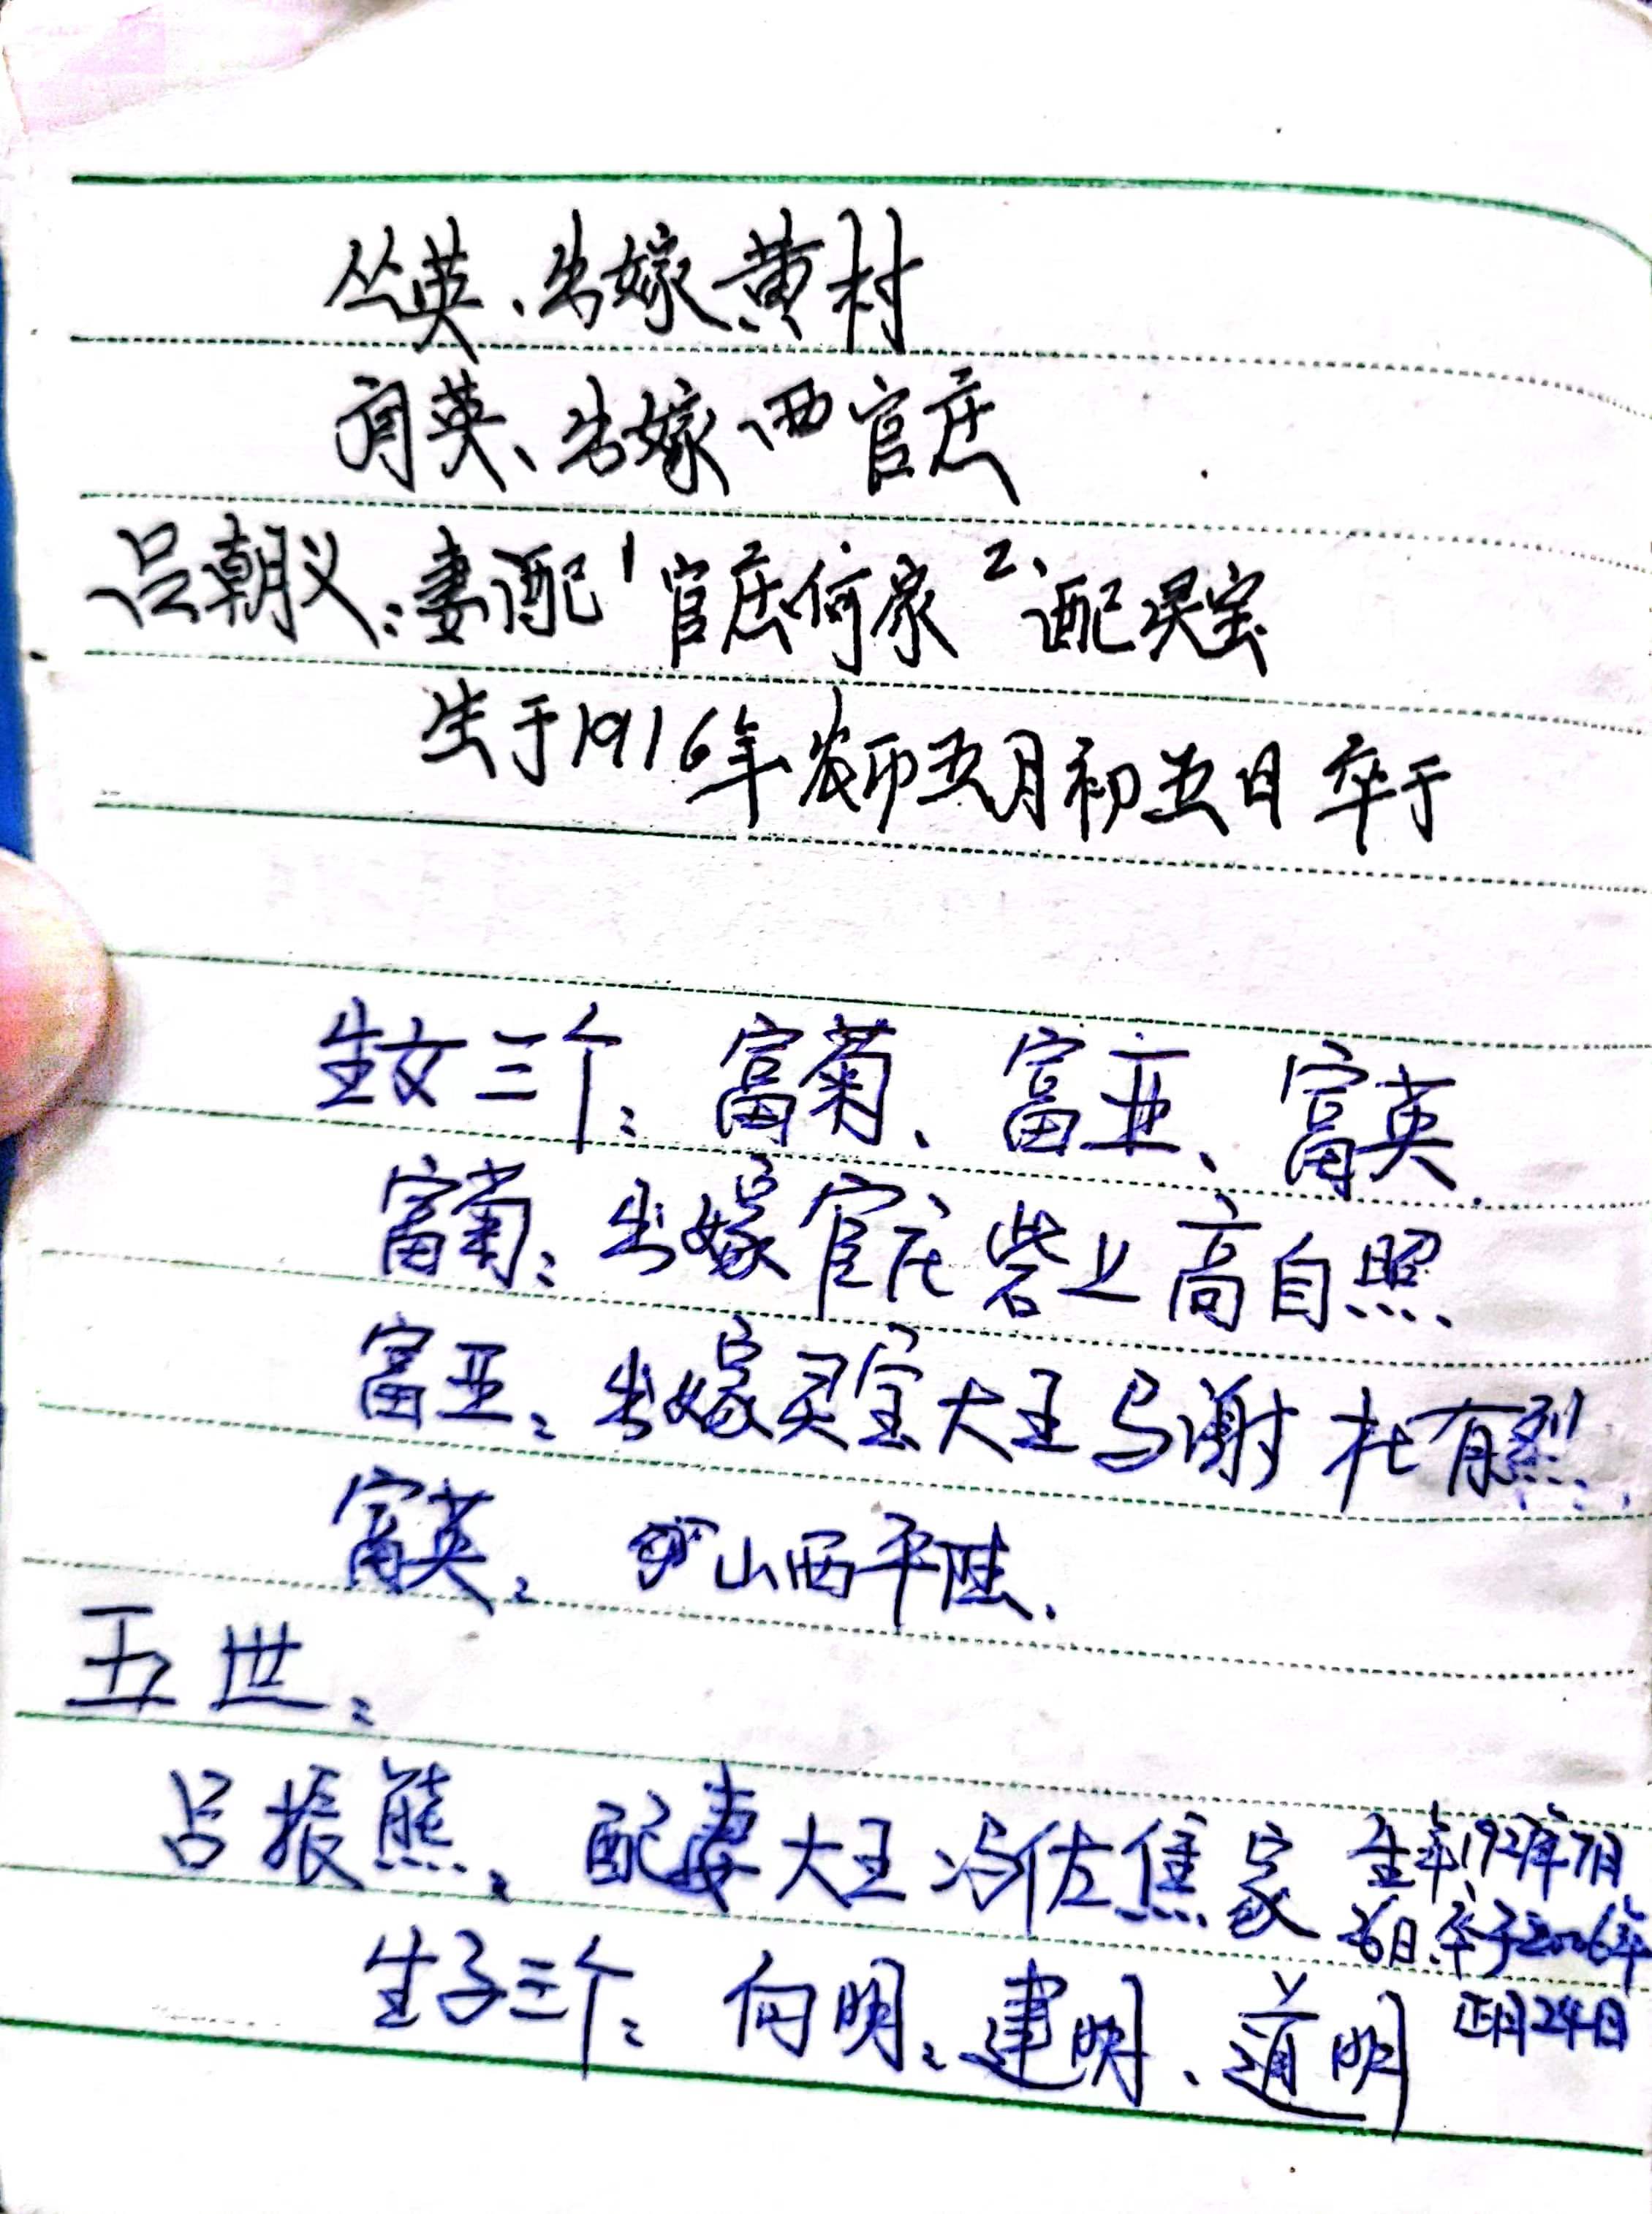 丛英、出嫁黄村
英、出嫁西官庄
吕朝义：妻配1官庄何家2、配灵宝
生于1916年农历五月初五日卒于
生女三个：富菊、富亚、富英.
富菊：出嫁官庄砦上高自照.
富亚：出嫁灵宝大王乌谢杜有烈.
富英：山西平陆.
五世：
吕振熊：配妻大王冯佐焦家 生年1927年7月
26日.卒于2006年
正月24日
生子三个：向明、建明、道明